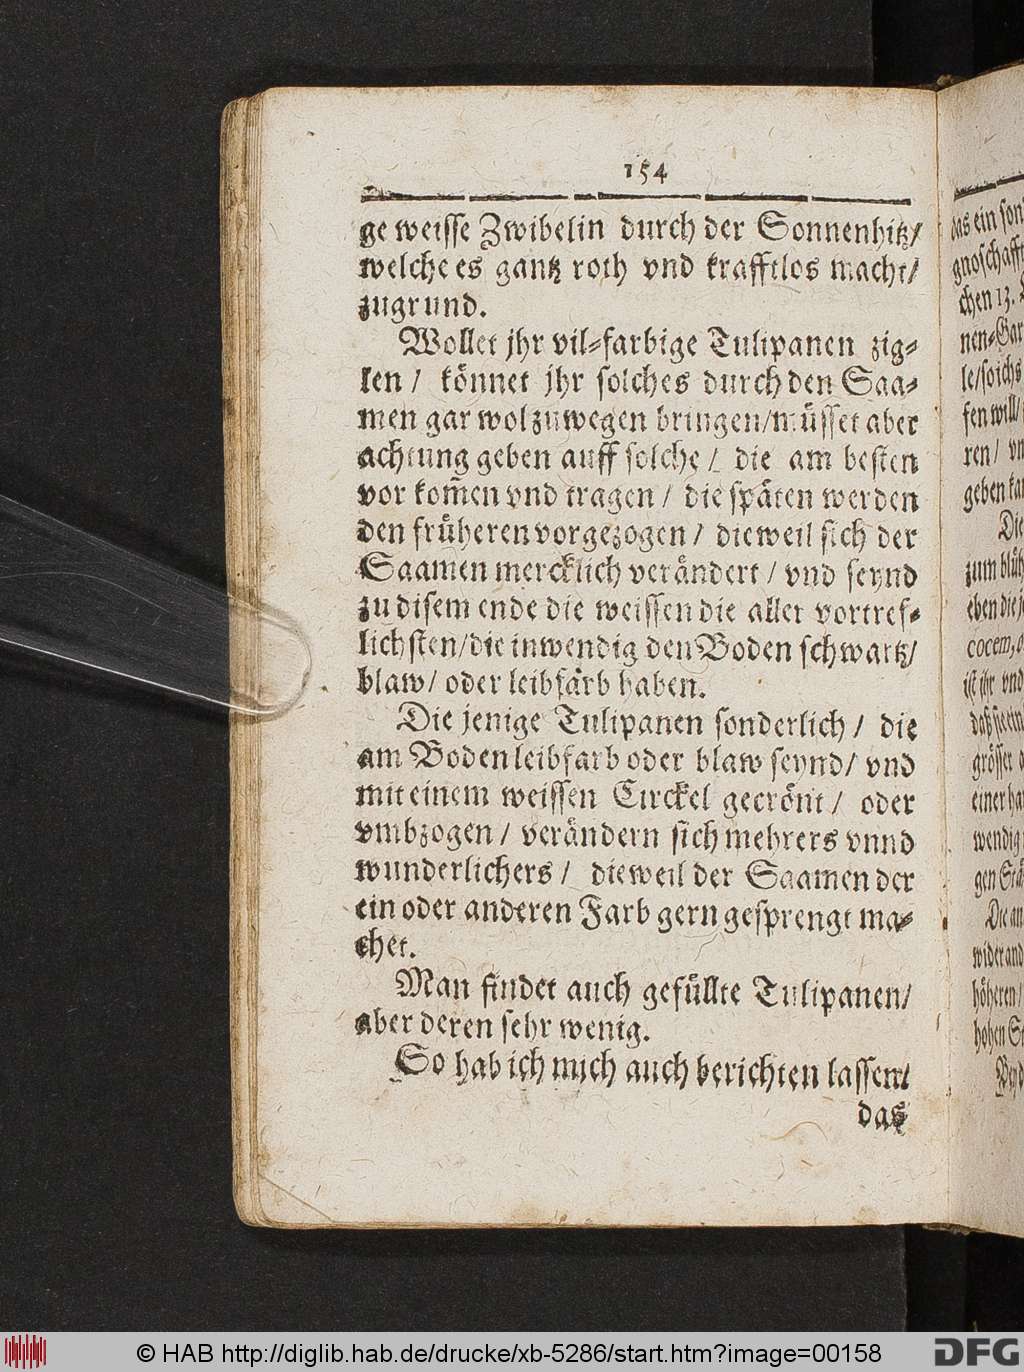 154
ge weisse Zwibelin durch der Sonnenhitz/
welche es gantz roth vnd krafftlos macht/
zugrund.
Wollet jhr vil-farbige Tulipanen zig-
len / könnet jhr solches durch den Saa-
men gar wol zuwegen bringen/müsset aber
achtung geben auff solche / die am besten
vor kom̄en vnd tragen / die späten werden
den früheren vorgezogen / dieweil sich der
Saamen mercklich verändert / vnd seynd
zu disem ende die weissen die aller vortref-
lichsten/die inwendig den Boden schwartz/
blaw/ oder leibfärb haben.
Die jenige Tulipanen sonderlich / die
am Boden leibfarb oder blaw seynd/ vnd
mit einem weissen Circkel gecrönt / oder
vmbzogen / verändern sich mehrers vnnd
wunderlichers / dieweil der Saamen der
ein oder anderen Farb gern gesprengt ma-
chet.
Man findet auch gefüllte Tulipanen/
aber deren sehr wenig.
So hab ich mich auch berichten lassen/
das
das ein son
chen 13.
nen-Gar
fen will/
ren / vn
geben kan
Die
zum blüh
eben die j
cocem,
ist ihr vnd
grösser
einer ha
wendig
gen Stä
Die an
wider and
höheren/
hohen S
© HAB http://diglib.hab.de/drucke/xb-5286/start.htm?image=00158
DFG